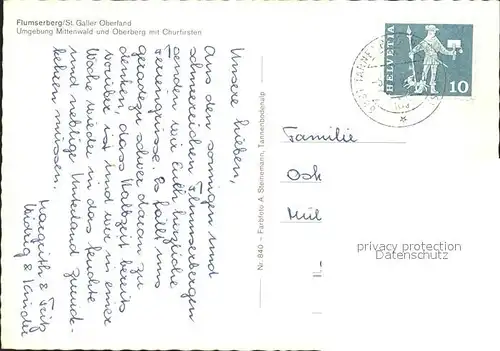 Flumserberg/St. Galler Oberland
Umgebung Mittenwald und Oberberg mit Churfirsten
Unsere lieben,
Aus den sonnigen und
schneereichen Flumserbergen
senden wir Euch herzliche
Feriengrüsse. Es fällt uns
geradezu schwer daran zu
denken, dass Halbzeit bereits
vorüber ist und wir in einer
Woche wieder in das feuchte
und neblige Unterland zurück-
kehren müssen.
Margrith & Fritz
& Kinder
Nr. 840 – Farbfoto A. Steinemann, Tannenbodenalp
HELVETIA
10
Familie
Osk
Mül
privacy protection
Datenschutz